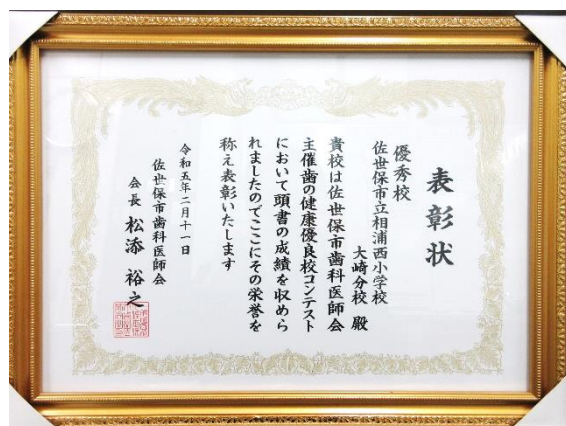 表彰状
優秀校
佐世保市立相浦西小学校
大崎分校 殿
貴校は佐世保市歯科医師会
主催歯の健康優良校コンテスト
において頭書の成績を収めら
れましたのでここにその栄誉を
称え表彰いたします
令和五年二月十一日
佐世保市歯科医師会
会長 松添 裕之